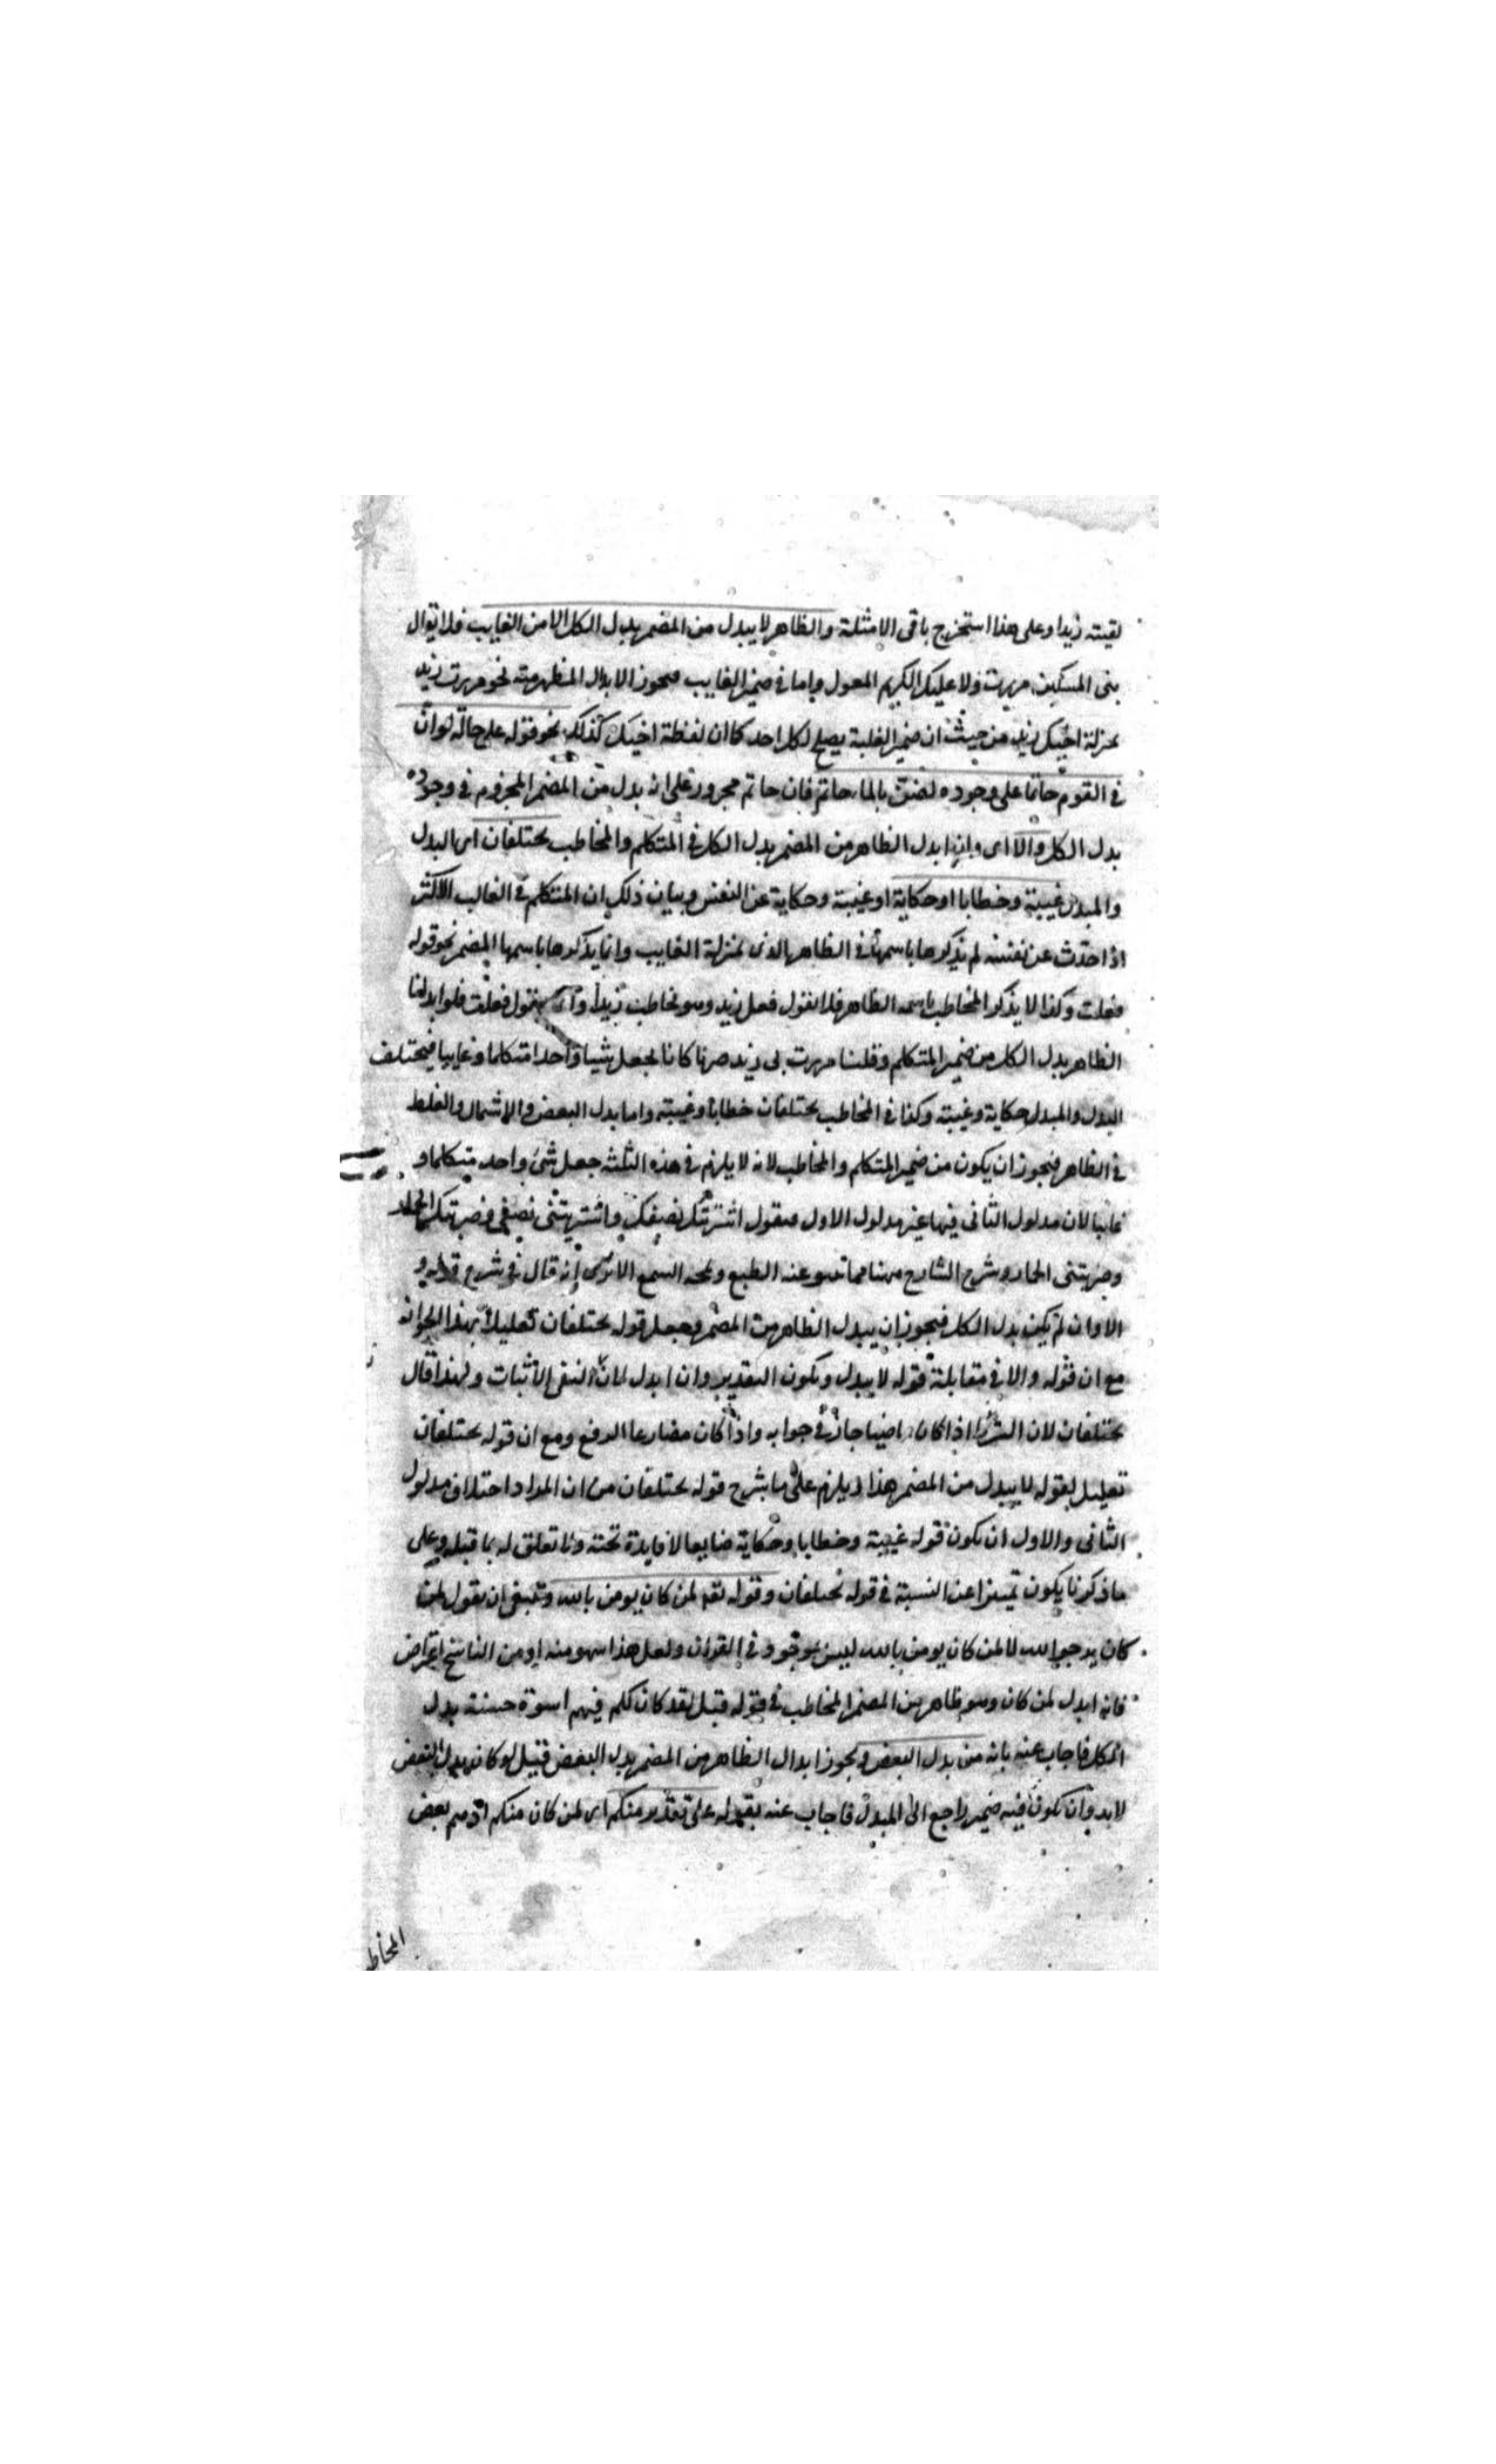 لقيته زيدا وعلى هذا استخرج باقى الامثلة والظاهر لا يبدل من المضمر بدل الكل الا من الغايب فلا يقال
بى المسكين مررت ولا عليك الكريم المعول واما فى ضمير الغايب فيجوز الابدال المظهر منه نحو مررت به زيد
بمنزلة اخيك زيد من حيث ان ضمير الغايب يصلح لكل احد كما ان لفظة اخيك كذلك نحو قوله على حالة لو ان
فى القوم حاتما على وجوده لضن بالماء حاتم فان حاتم مجرور على انه بدل من المضمر المجرور فى وجوده
بدل الكل والا اى وان ابدل الظاهر من المضمر بدل الكل فى المتكلم والمخاطب يختلفان اى البدل
والمبدل غيبة وخطابا او حكاية او غيبة وحكاية عن النفس وبيان ذلك ان المتكلم فى الغالب الاكثر
اذا حدث عن نفسه لم يذكرها باسمها الظاهر الذى بمنزلة الغايب وانما يذكرها باسمها المضمر نحو قوله
فعلت وكذا لا يذكر المخاطب باسمه الظاهر فلا نقول فعل زيد وهو نخاطب زيدا نقول فعلت فلو ابدلنا
الظاهر بدل الكل من ضمير المتكلم وقلنا مررت بى زيد صرنا كانا نجعل شيا واحدا متكلما وغايبا فيختلف
البدل والمبدل حكاية وغيبة وكذا فى المخاطب يختلفان خطابا وغيبة واما بدل البعض والاشتمال والغلط
فى الظاهر فيجوز ان يكون من ضمير المتكلم والمخاطب لانه لا يلزم فى هذه الثلثة جعل شئ واحد متكلما و
غايبا لان مدلول الثانى فيها غير مدلول الاول فيقول اشتريتك نصفك واشتريتنى نصفى وضربتك الحمار
وضربتنى الحمار وشرح الشارح هنا مما ينبو عنه الطبع ويمجه السمع الا ترى انه قال فى شرح قوله و
الا وان لم يكن بدل الكل فيجوز ان يبدل الظاهر من المضمر وجعل قوله يختلفان تعليلا بهذا الجواز
مع ان قوله والا فى مقابلة قوله لا يبدل ويكون التقدير وان ابدل لان النفى الاثبات ولهذا قال
يختلفان لان الشرط اذا كان ماضيا جاز فى جوابه واذا كان مضارعا الرفع ومع ان قوله يختلفان
تعليل لقوله لا يبدل من المضمر هذا ويلزم على ما شرح قوله يختلفان من ان المراد اختلاف مدلول
الثانى والاول ان يكون قوله غيبة وخطابا وحكاية ضايعا لا فايدة تحته ولا تعلق له بما قبله وعلى
ما ذكرنا يكون تمييزا عن النسبة فى قوله يختلفان وقوله تعه لمن كان يومن بالله وينبغى ان يقول لمن
كان يرجو الله لا لمن كان يومن بالله ليس بموجود فى القران ولعل هذا سهو منه او من الناسخ اعتراض
فانه ابدل لمن كان وهو ظاهر من المضمر المخاطب فى قوله قبل لقد كان لكم فيهم اسوة حسنة بدل
الكل فاجاب عنه بانه من بدل البعض ويجوز ابدال الظاهر من المضمر بدل البعض فقيل لو كان بدل البعض
لابد وان يكون فيه ضمير راجع الى المبدل فاجاب عنه بقوله على تقدير منكم اى لمن كان منكم اذ هم بعض
المخاط